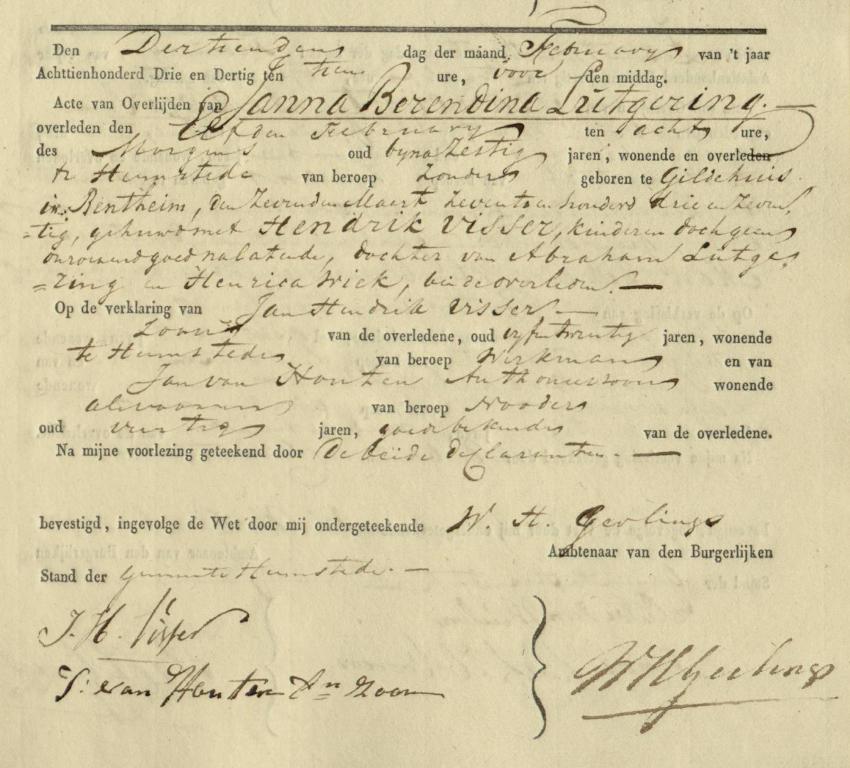 Den Dertienden dag der máand Februarij van 't jaar
Achttienhonderd Drie en Dertig ten tien ure, voor den middag.
Acte van Overlijden van Janna Berendina Lutgering.
overleden den Elfden February ten acht ure,
des Morgens oud byna Zestig jaren, wonende en overleden
te Heemstede van beroep Zonder geboren te Gildehuis
in Bentheim, den Zevenden Maert Zeventienhonderd drie en Zeven,
=tig, gehuwd met Hendrik Visser, kinderen doch geen
onroerend goed nalatende, dochter van Abraham Lutge,
=ring en Henrica Wick, beide overleden.
Op de verklaring van Jan Hendrik Visser
Zoon van de overledene, oud vyfentwintig jaren, wonende
te Heemstede van beroep Werkman en van
Jan van Houten Anthoniezoon wonende
alvoren van beroep
oud veertig jaren, goede bekende van de overledene.
Na mijne voorlezing geteekend door De beide declaranten.
bevestigd, ingevolge de Wet door mij ondergeteekende W. H. Gerlings
Ambtenaar van den Burgerlijken
Stand der Gemeente Heemstede.
J. H. Visser
J: van Houten An zoon
WHGerlings